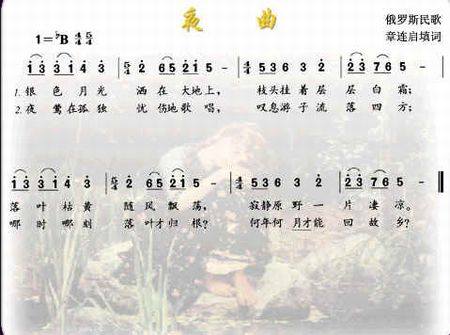 夜曲
俄罗斯民歌
章连启填词
1=♭B 4/4 5/4
1 3 3 1 4 3 | 5/4 2 6 5 2 1 5 - | 4/4 5 3 6 3 2 | 5/4 2 3 7 6 5 - |
1. 银色月光 洒在大地上, 枝头挂着层层白霜;
2. 夜莺在孤独 忧伤地歌唱, 叹息游子流落四方;
1 3 3 1 4 3 | 5/4 2 6 5 2 1 5 - | 4/4 5 3 6 3 2 | 5/4 2 3 7 6 5 - ‖
落叶枯黄 随风飘荡, 寂静原野一片凄凉。
哪时哪刻 落叶才归根? 何年何月才能回故乡?